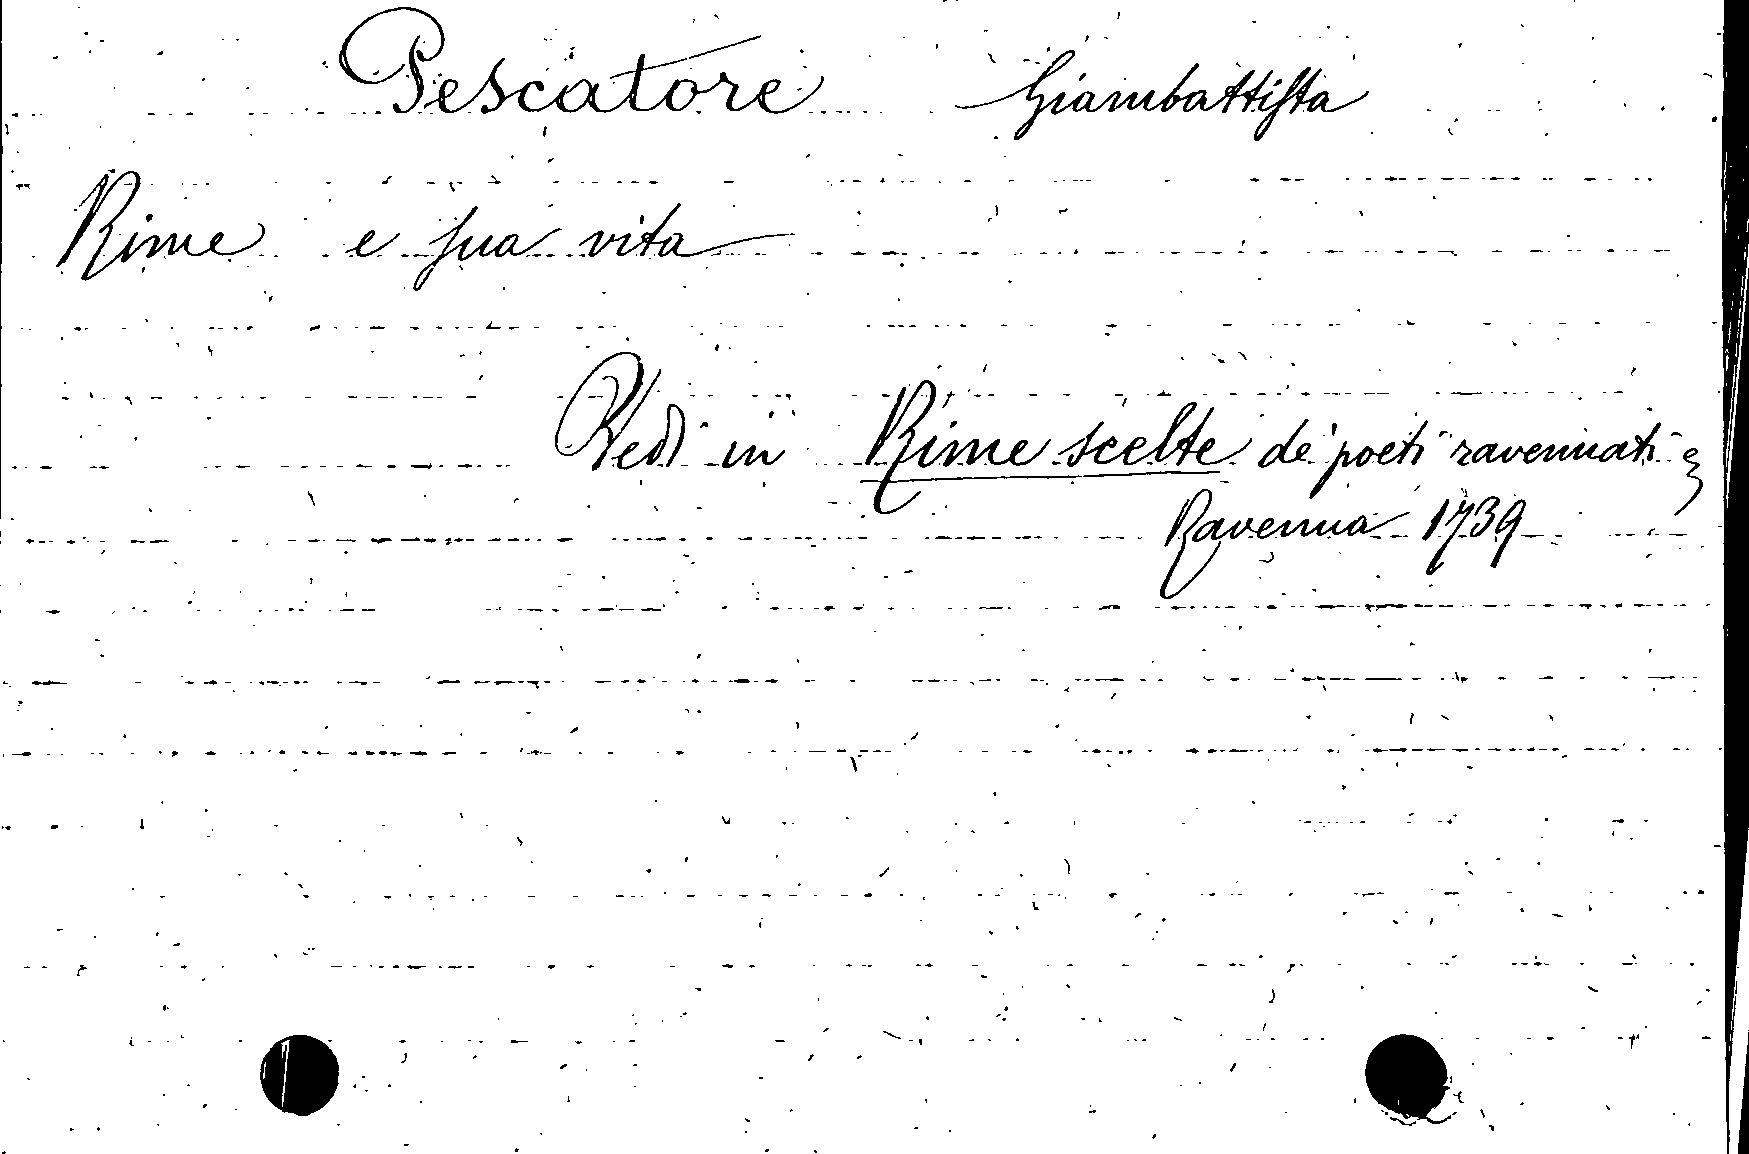 Pescatore Giambattista
Rime e sua vita
Vedi in Rime scelte de' poeti ravennati
Ravenna 1739